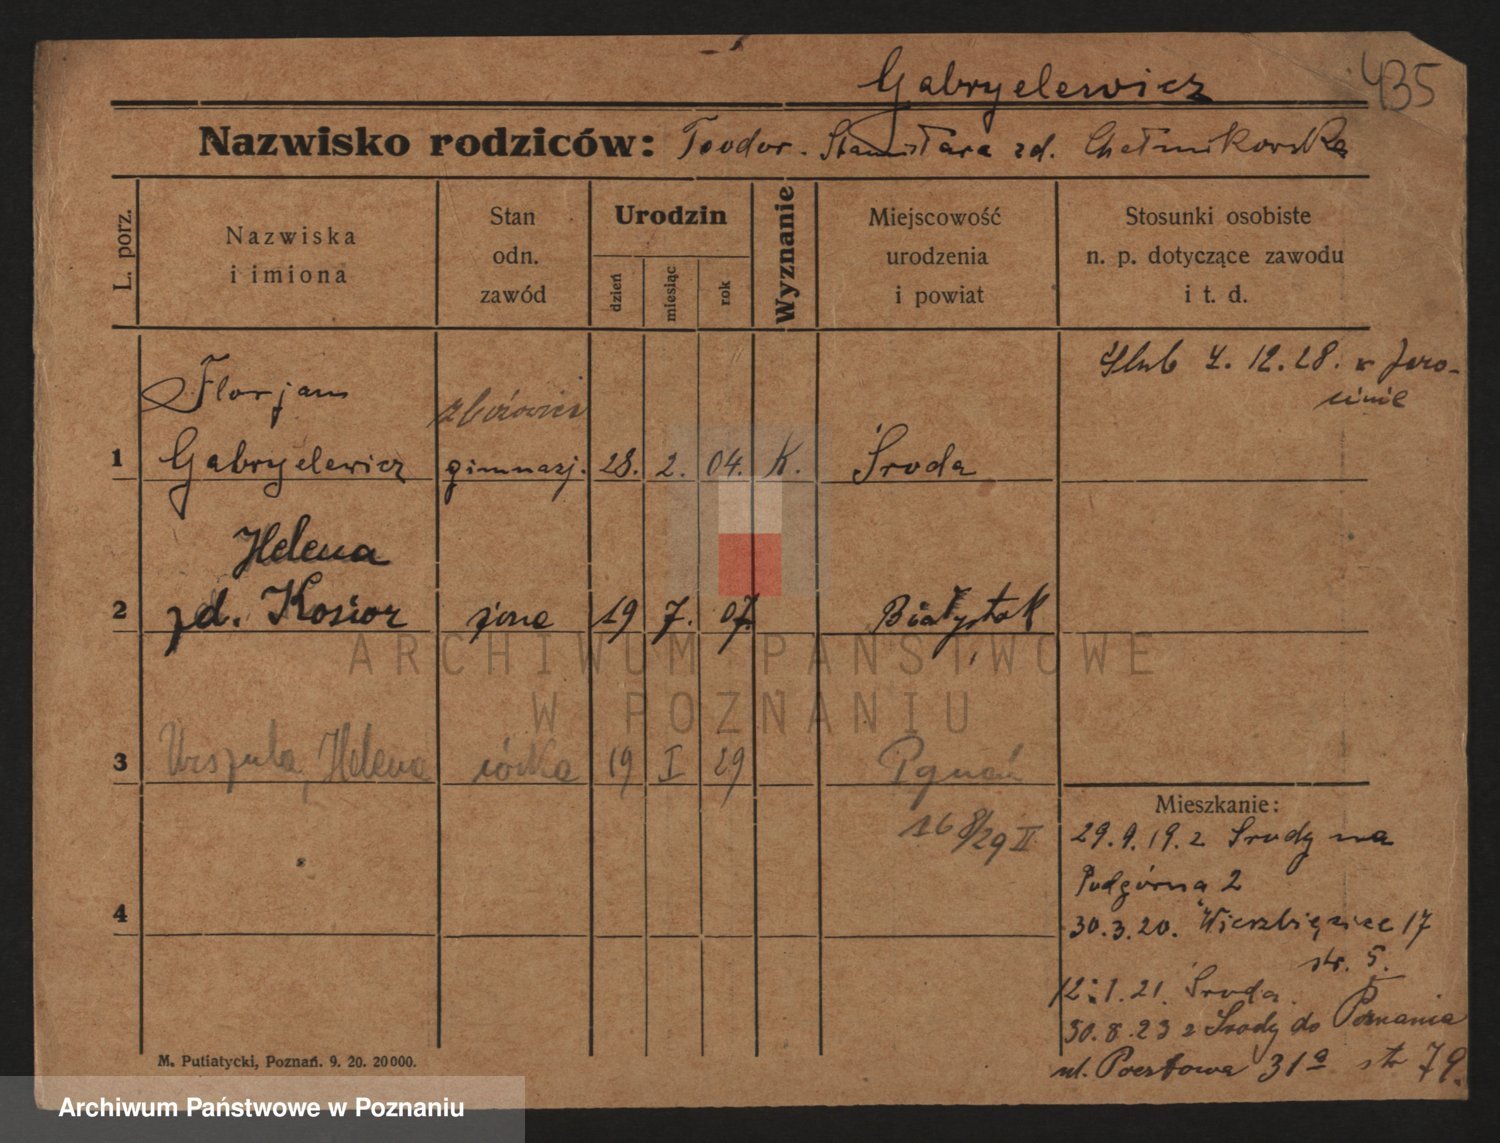 435
Gabryelewicz
Nazwisko rodziców: Teodor. Stanisława zd. Chełmikowska
L. porz.
Nazwiska
i imiona
Stan
odn.
zawód
Urodzin
dzień
miesiąc
rok
Wyznanie
Miejscowość
urodzenia
i powiat
Stosunki osobiste
n. p. dotyczące zawodu
i t. d.
Florjan
1 Gabryelewicz gimnazj. 28. 2. 04. K. Środa
Ślub 4. 12. 28. w Jaro-
cinie
Helena
2 zd. Kosior żona 19 7. 07. Białystok
3 Urszula, Helena córka 19 I 29 Poznań
16 8/29 II
4
Mieszkanie:
29.9.19. z Środy na
Podgórna 2
30.3.20. Wierzbięcice 17
str. 5.
12.1.21. Środa.
30.8.23 z Środy do Poznania
ul. Pocztowa 31a str 79.
M. Putiatycki, Poznań. 9. 20. 20000.
ARCHIWUM PAŃSTWOWE
W POZNANIU
Archiwum Państwowe w Poznaniu